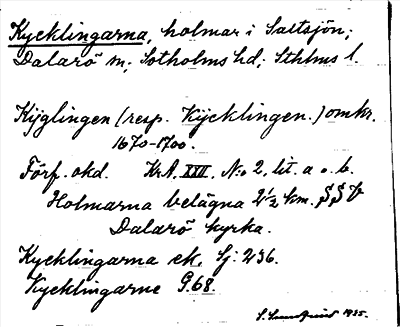 Kycklingarna, holmar i Saltsjön;
Dalarö sn; Sotholms hd; Sthlms l.
Kijglingen (resp. Kijcklingen.) omkr.
1670-1700.
Förf. okd. Kr.A. XXII. N:o 2, lit. a o. b.
Holmarna belägna 2½ km. SSV
Dalarö kyrka.
Kycklingarna ek. Sj: 236.
Kycklingarne G.68.
1935.